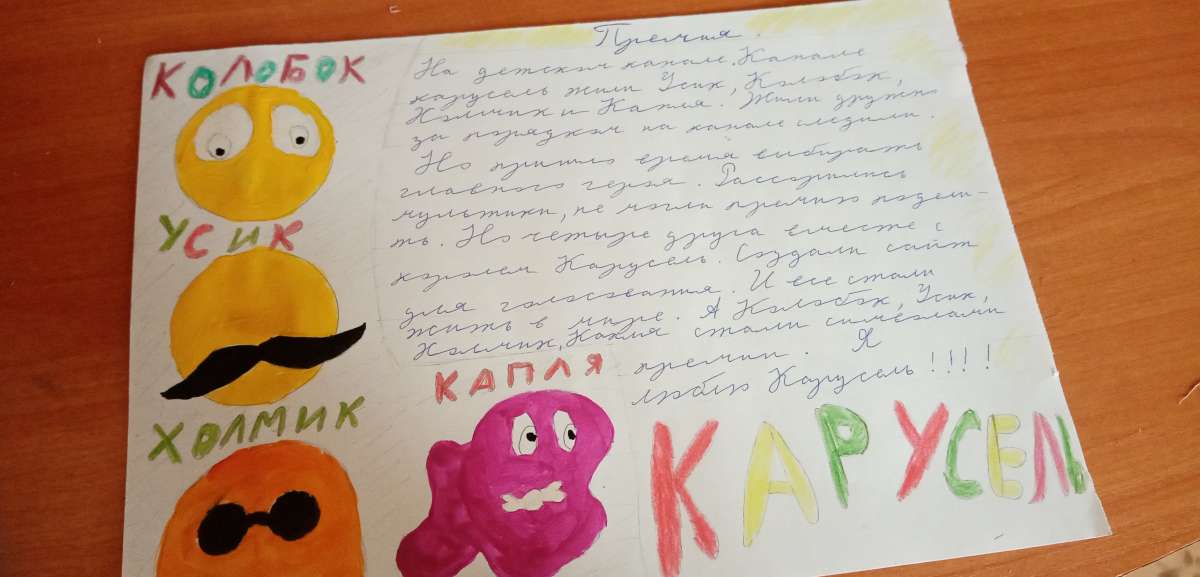 КОЛОБОК
УСИК
ХОЛМИК
Премия.
На детском канале. Канале
карусель жили Усик, Колобок,
Холмик и Капля. Жили дружно
за порядком на канале следили.
Но пришло время выбирать
главного героя. Рассорились
мультики, не могли премию подели-
ть. Но четыре друга вместе с
королем Карусель. Создали сайт
для голосования. И все стали
жить в мире. А Колобок, Усик,
Холмик, Капля стали символами
премии. Я
люблю Карусель!!!!
КАПЛЯ
КАРУСЕЛЬ